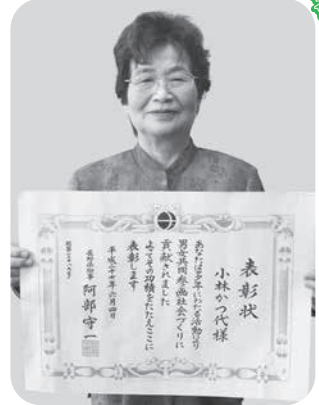 表彰状
小林かつ代様
あなたは多年にわたる活動により
男女共同参画社会づくりに
貢献されました
よってその功績をたたえここに
表彰します
平成二十七年六月四日
長野県知事 阿部守一